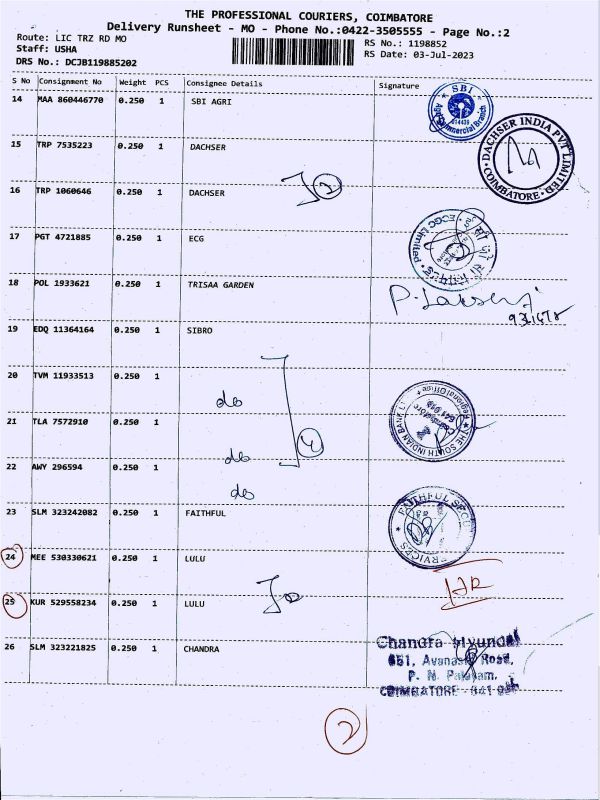 THE PROFESSIONAL COURIERS, COIMBATORE
Delivery Runsheet - MO - Phone No.:0422-3505555 - Page No.:2
Route: LIC TRZ RD MO
RS No.: 1198852
Staff: USHA
RS Date: 03-Jul-2023
DRS No.: DCJB119885202
S No Consignment No Weight PCS Consignee Details Signature
14 MAA 860446770 0.250 1 SBI AGRI
SBI
Agri Commercial Branch
15 TRP 7535223 0.250 1 DACHSER
DACHSER INDIA PVT LIMITED
COIMBATORE
16 TRP 1060646 0.250 1 DACHSER
2
17 PGT 4721885 0.250 1 ECG
ECGC Limited
18 POL 1933621 0.250 1 TRISAA GARDEN
19 EDQ 11364164 0.250 1 SIBRO
20 TVM 11933513 0.250 1
do
21 TLA 7572910 0.250 1
THE SOUTH INDIAN BANK
Regional Office
Coimbatore
4
do
22 AWY 296594 0.250 1
do
23 SLM 323242082 0.250 1 FAITHFUL
FAITHFUL
24 MEE 530330621 0.250 1 LULU
25 KUR 529558234 0.250 1 LULU
26 SLM 323221825 0.250 1 CHANDRA
Chandra Hyundai
Road,
P. N. Palayam.
COIMBATORE
2